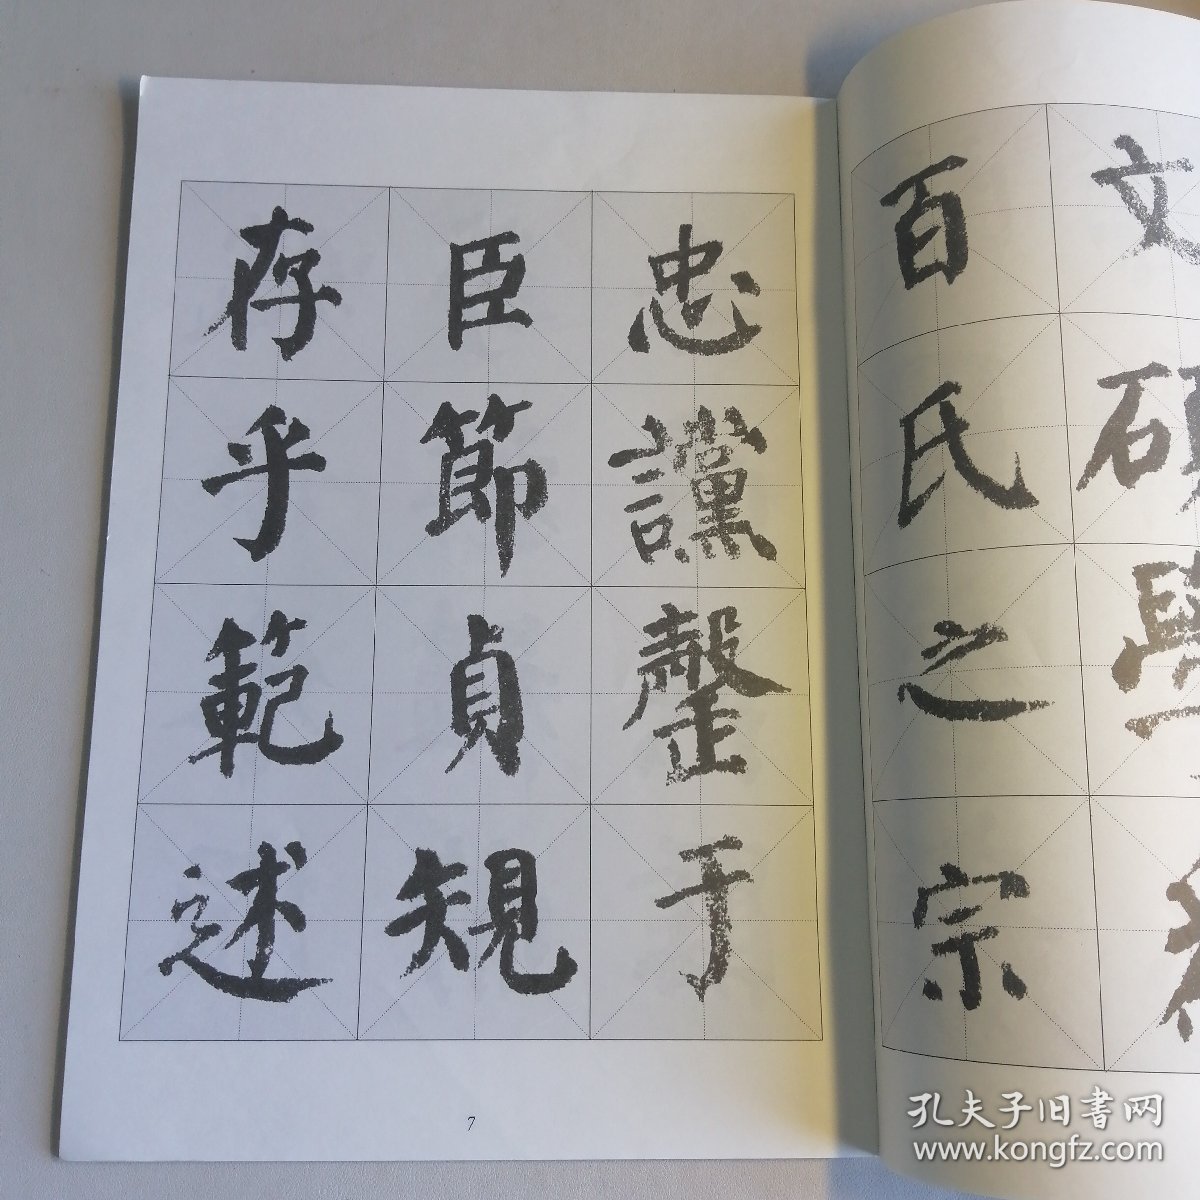 文碩學為
百氏之宗
忠讜罄于
臣節貞規
存乎範述
7
孔夫子旧書网
www.kongfz.com